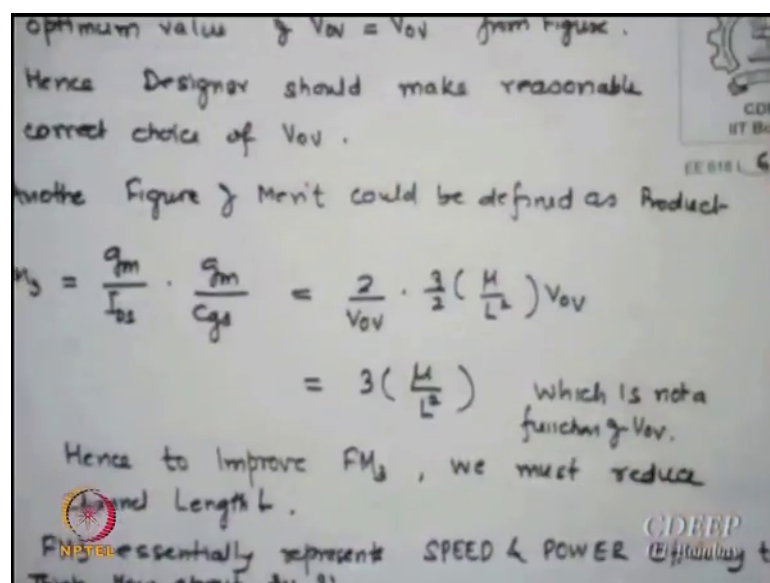 optimum value of Vov = Vov from Figure.
Hence Designer should make reasonable
correct choice of Vov.
CD
IIT Bo
EE 618 L 6
Anothe Figure of Merit could be defined as Product
M3 = gm/IDS · gm/Cgs = 2/Vov · 3/2 (μ/L²) Vov
= 3 (μ/L²) Which is not a
function of Vov.
Hence to Improve FM3, we must reduce
Channel Length L.
FM3 essentially represents SPEED & POWER
NPTEL
CDEEP
IIT Bombay